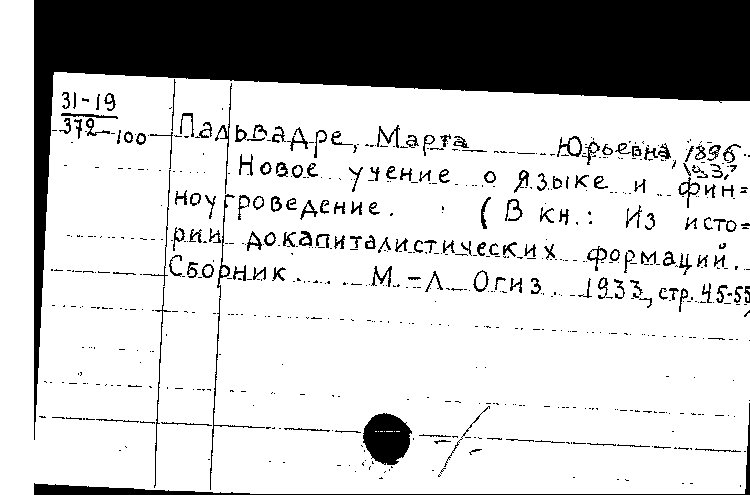 31-19
372-100
Пальвадре, Марта Юрьевна, 1896-
Новое учение о языке и фин=
ноугроведение. (В кн.: Из исто=
рии докапиталистических формаций.
Сборник М.-Л Огиз. 1933, стр. 45-55)